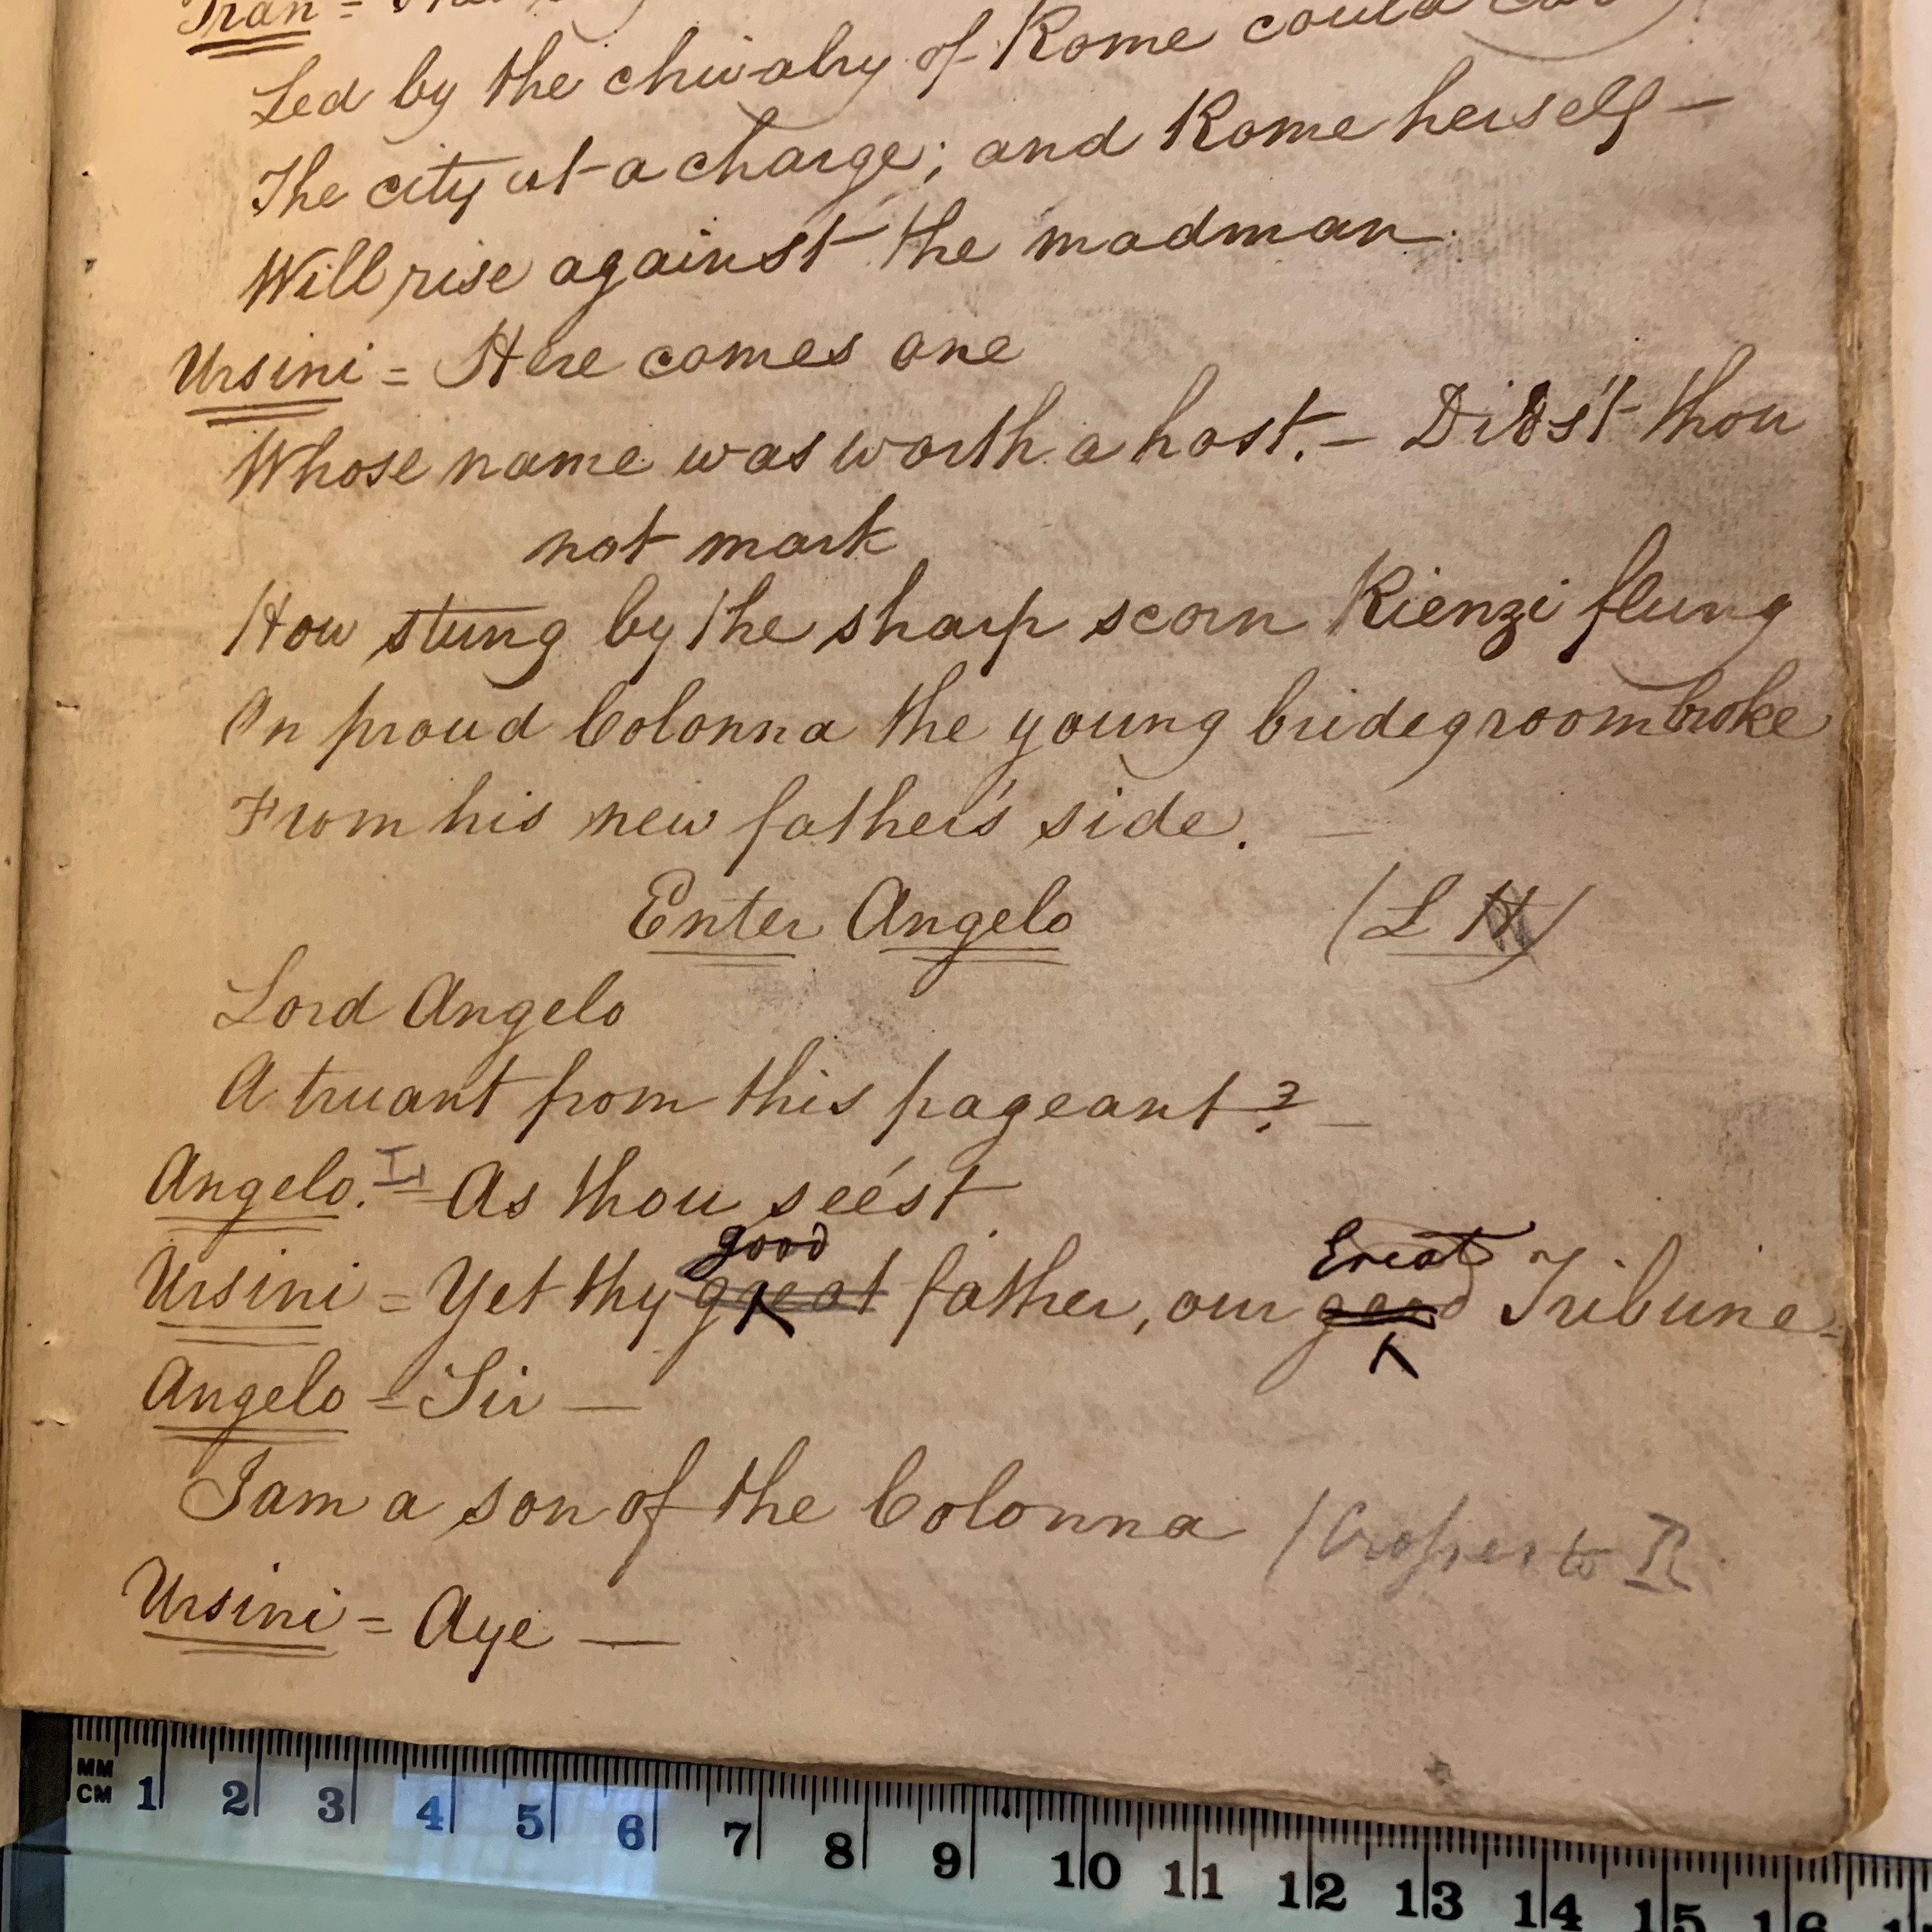 Fran =
Led by the chivalry of Rome could
The city at a charge; and Rome herself —
Will rise against the madman.
Ursini = Here comes one
Whose name was worth a host. — Dids't thou
not mark
How stung by the sharp scorn Rienzi flung
On proud Colonna the young bridegroom broke
From his new father's side. —
Enter Angelo (L H)
Lord Angelo
A truant from this pageant? —
Angelo. = As thou seést
good Great
Ursini = Yet thy great father, our good Tribune =
Angelo = Sir —
I am a son of the Colonna (Crosses to R
Ursini = Aye —
MM
CM 1 2 3 4 5 6 7 8 9 10 11 12 13 14 15 16